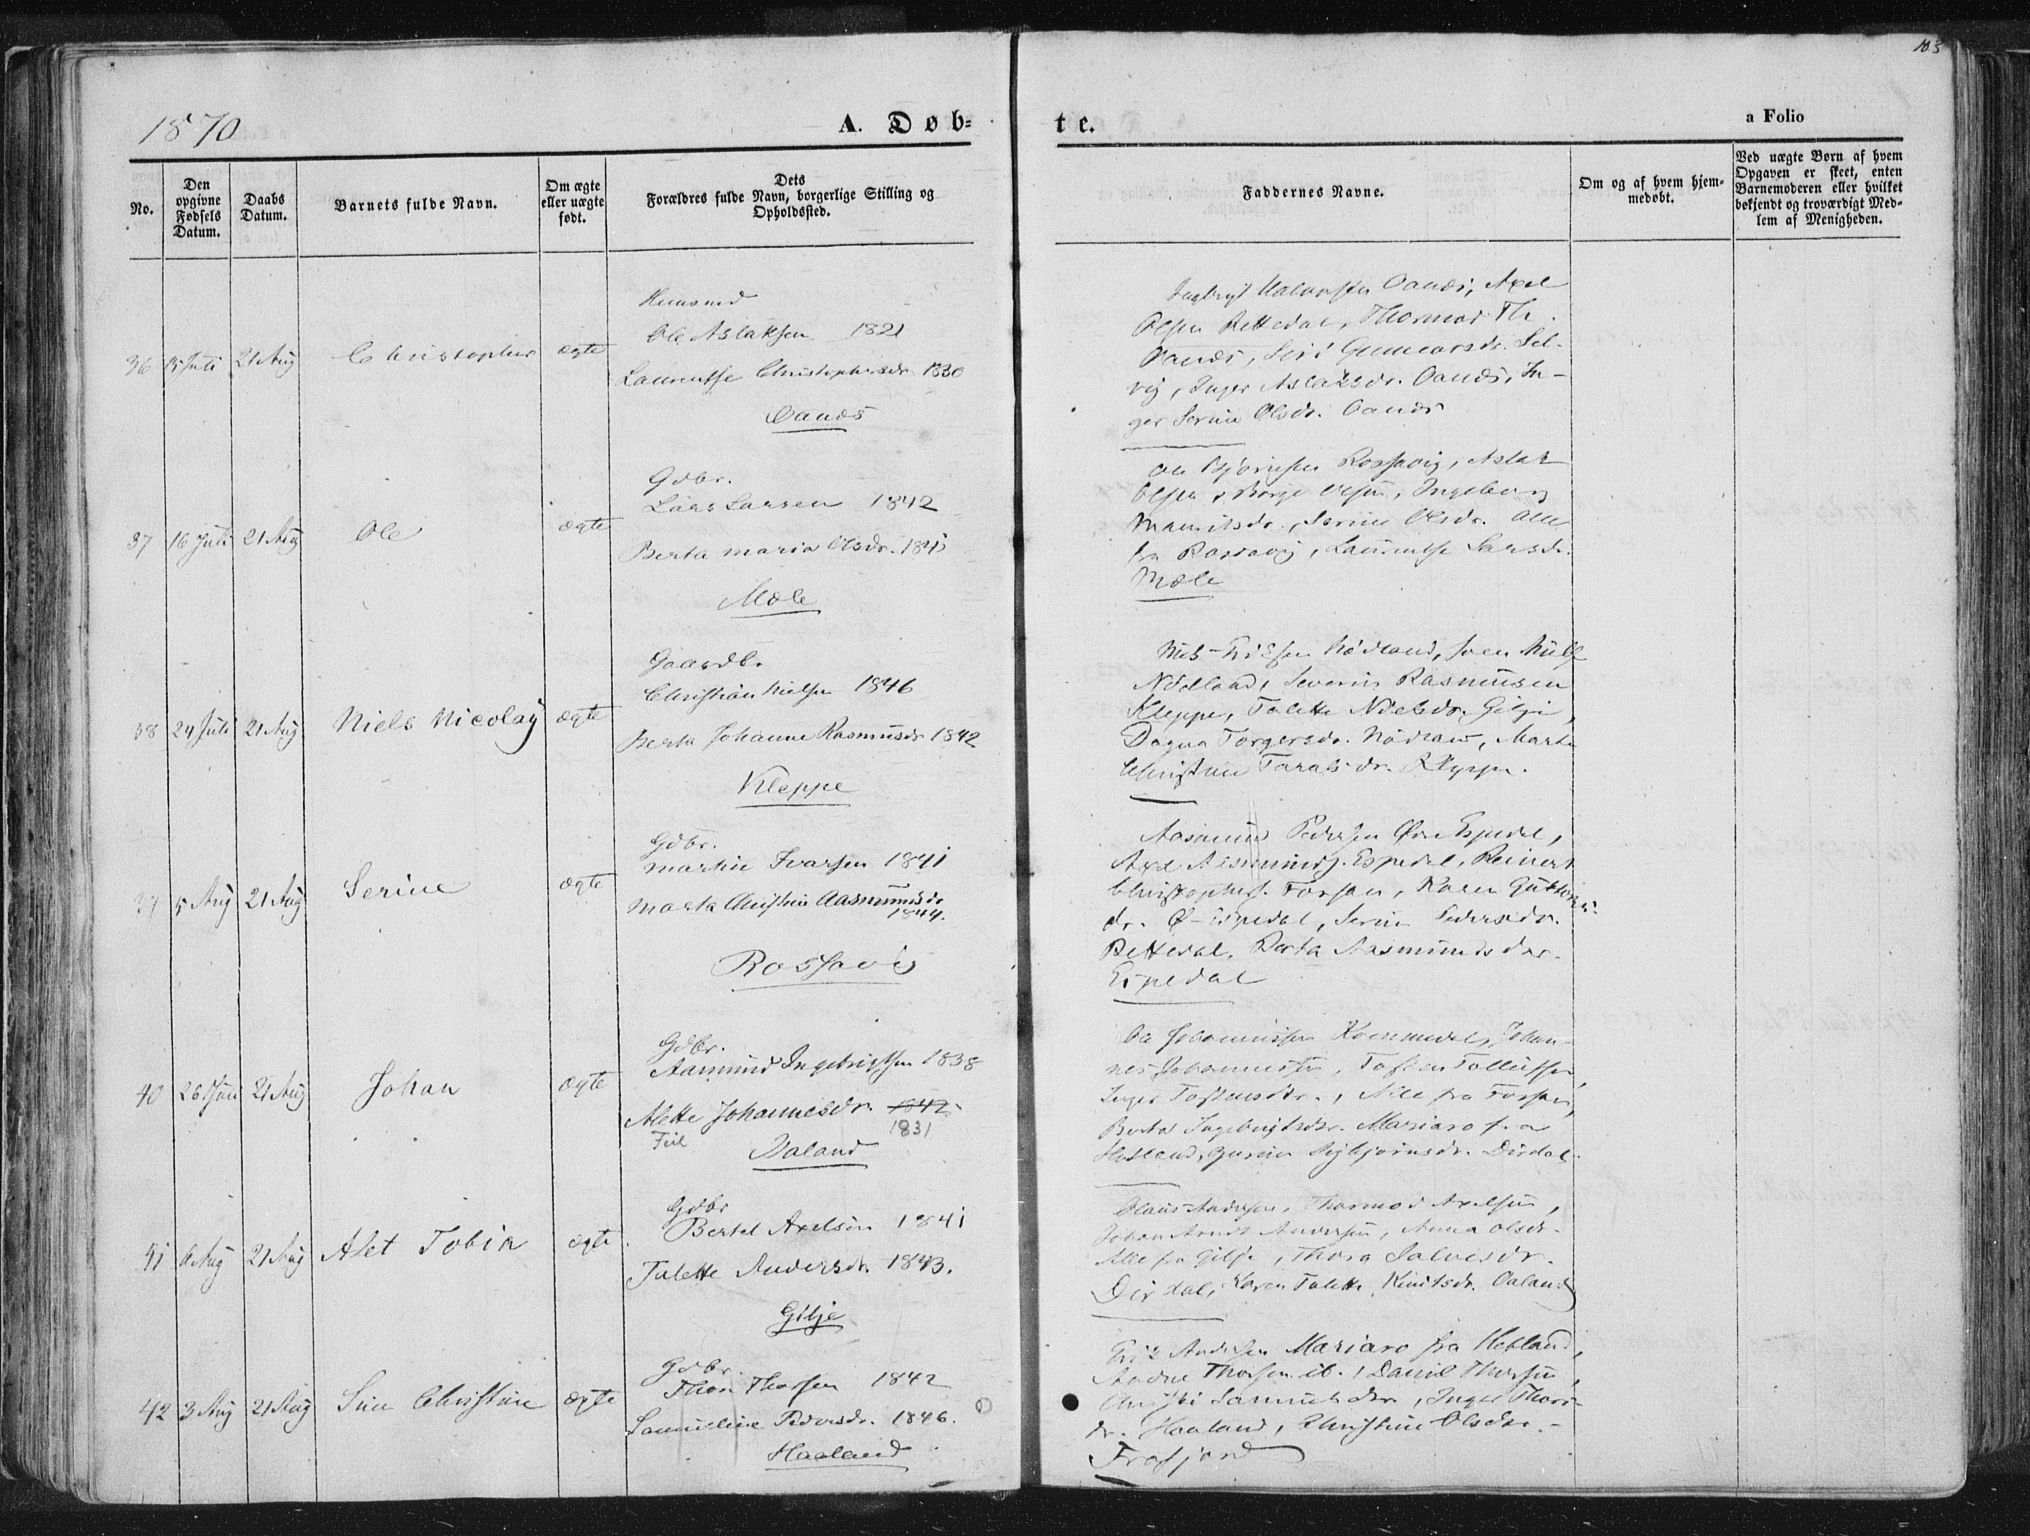 103
1870
A. Døb-
te.
a Folio
No.
Den opgivne Fødsels Datum.
Daabs Datum.
Barnets fulde Navn.
Om ægte eller uægte født.
Dets Forældres fulde Navn, borgerlige Stilling og Opholdssted.
Faddernes Navne.
Om og af hvem hjemmedøbt.
Ved uægte Børn af hvem Opgaven er skeet, enten Barnemoderen eller hvilket bekjendt og troværdigt Medlem af Menigheden.
36 15 Juli 21 Aug Christopher ægte
Huusmd
Ole Aslaksen 1821
Laurentse Christophersdr 1830
Oanæs
Oanæs, Axel
Olsen Rettedal, Thormod Th.
Oanæs, Siri Gunnarsdr. Sel-
vig, Inger Aslaksdr. Oanæs, In-
ger Serine Olsdr. Oanæs
37 16 Juli 21 Aug Ole ægte
Gdbr.
Lars Larsen 1842
Berta Maria Olsdr. 1845
Mæle
Ole Bjørnsen Rossavig, Aslak
Olsen, Børge Olsen, Ingeborg
Mauritsdr., Serine Olsdr. Alle
fra Rossavig, Laurentse Larsdr.
Mæle
38 24 Juli 21 Aug Niels Nicolay ægte
Gaardbr.
Christian Nielsen 1846
Berta Johanne Rasmusdr 1842
Kleppe
Nils Eriksen Nødland, Sven Niels.
Nødland, Severin Rasmussen
Kleppe, Talette Nielsdr. Gilje,
Dagna Torgersdr. Nødland, Marta
Christine Taralsdr. Kleppe.
39 5 Aug 21 Aug Serine ægte
Gdbr.
Martin Ivarsen 1841
Marta Christine Aasmundsdr
1844.
Rossavig
Aasmund Pedersen Øvre Espedal,
Axel Aasmunds. Espedal, Reinert
Christophers. Forsan, Karen Guttorms-
dr. Ø-Espedal, Serine Pedersdr.
Rettedal, Berta Aasmundsdtr.
Espedal
40 26 Juni 21 Aug Johan ægte
Gdbr.
Aamund Ingebrigtsen 1838
Alette Johannesdr. 1842.
Feil 1831
Daland
Ole Johannessen Kommedal, Johan-
nes Johannessen, Tosten Tollefsen,
Inger Tostensdtr., Alle fra Forsan,
Berta Ingebrigtsdtr. Mariaro fra
Hetland, Gurine Sigbjørnsdr. Dirdal.
41 6 Aug 21 Aug Alet Tobia ægte
Gdbr
Bertel Axelsen 1841
Talette Andersdr. 1843.
Gilje
Olaus Andersen, Thormod Axelsen,
Johan Arndt Andersen, Anna Olsdr.
Alle fra Gilje, Thora Salvesdr.
Dirdal, Karen Talette Knutsdr. Oaland
42 3 Aug 21 Aug Sine Christine ægte
Gdbr.
Thore Thorsen 1842
Samueline Pedersdr. 1846.
Haaland
Erik Andersen Mariaro fra Hetland,
Andre Thorsen ib., Daniel Thorsen,
Christi Samuelsdtr, Inger Thors-
dr. Haaland, Christine Olsdtr.
Frafjord